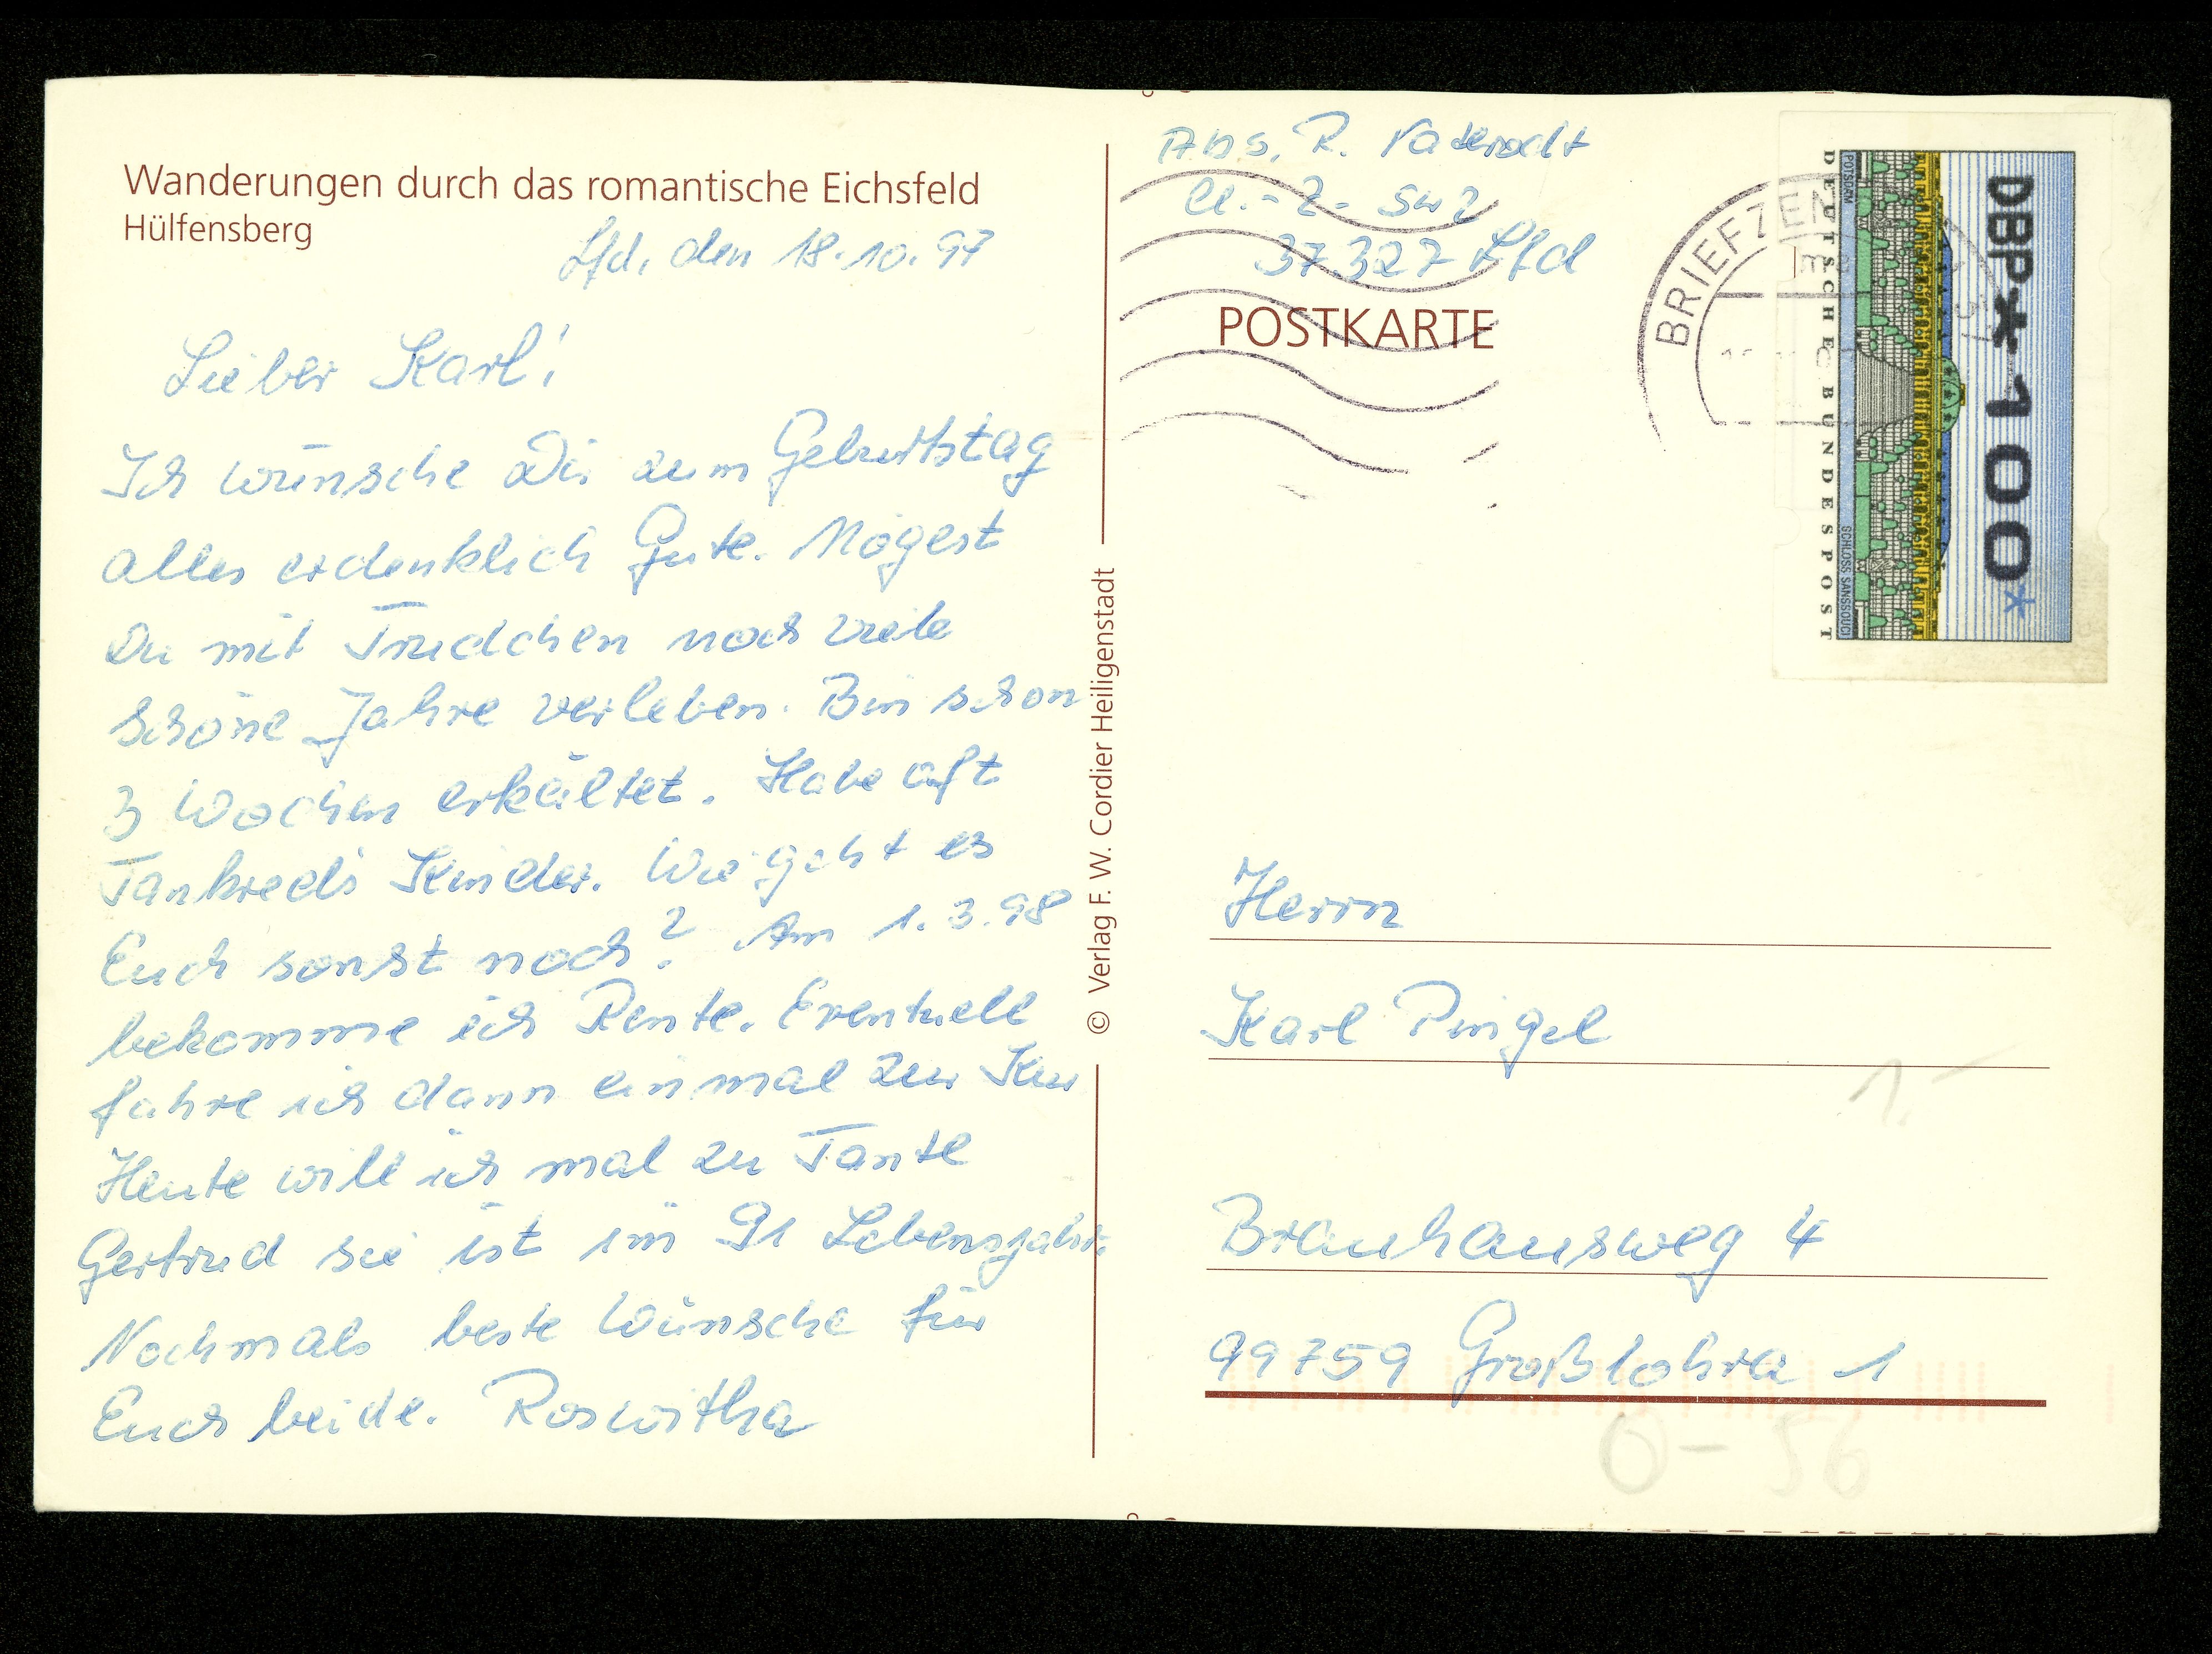 Wanderungen durch das romantische Eichsfeld
Hülfensberg
Lfd, den 18.10.97
Lieber Karl!
Ich wünsche Dir zum Geburtstag
alles erdenklich Gute. Mögest
Du mit Trudchen noch viele
schöne Jahre verleben. Bin schon
3 Wochen erkältet. Habe oft
Tankreds Kinder. Wie geht es
Euch sonst noch? Am 1.3.98
bekomme ich Rente. Eventuell
fahre ich dann einmal zur Kur
Heute will ich mal zu Tante
Gertrud sie ist im 91 Lebensjahr.
Nochmals beste Wünsche für
Euch beide. Roswitha
© Verlag F. W. Cordier Heiligenstadt
Abs. R.
37327 Lfd
POSTKARTE
BRIEFZEN
DEUTSCHE BUNDESPOST
POTSDAM
SCHLOSS SANSSOUCI
DBP*100*
Herrn
Karl Pingel
1.-
Brauhausweg 4
99759 Großlohra 1
O-56